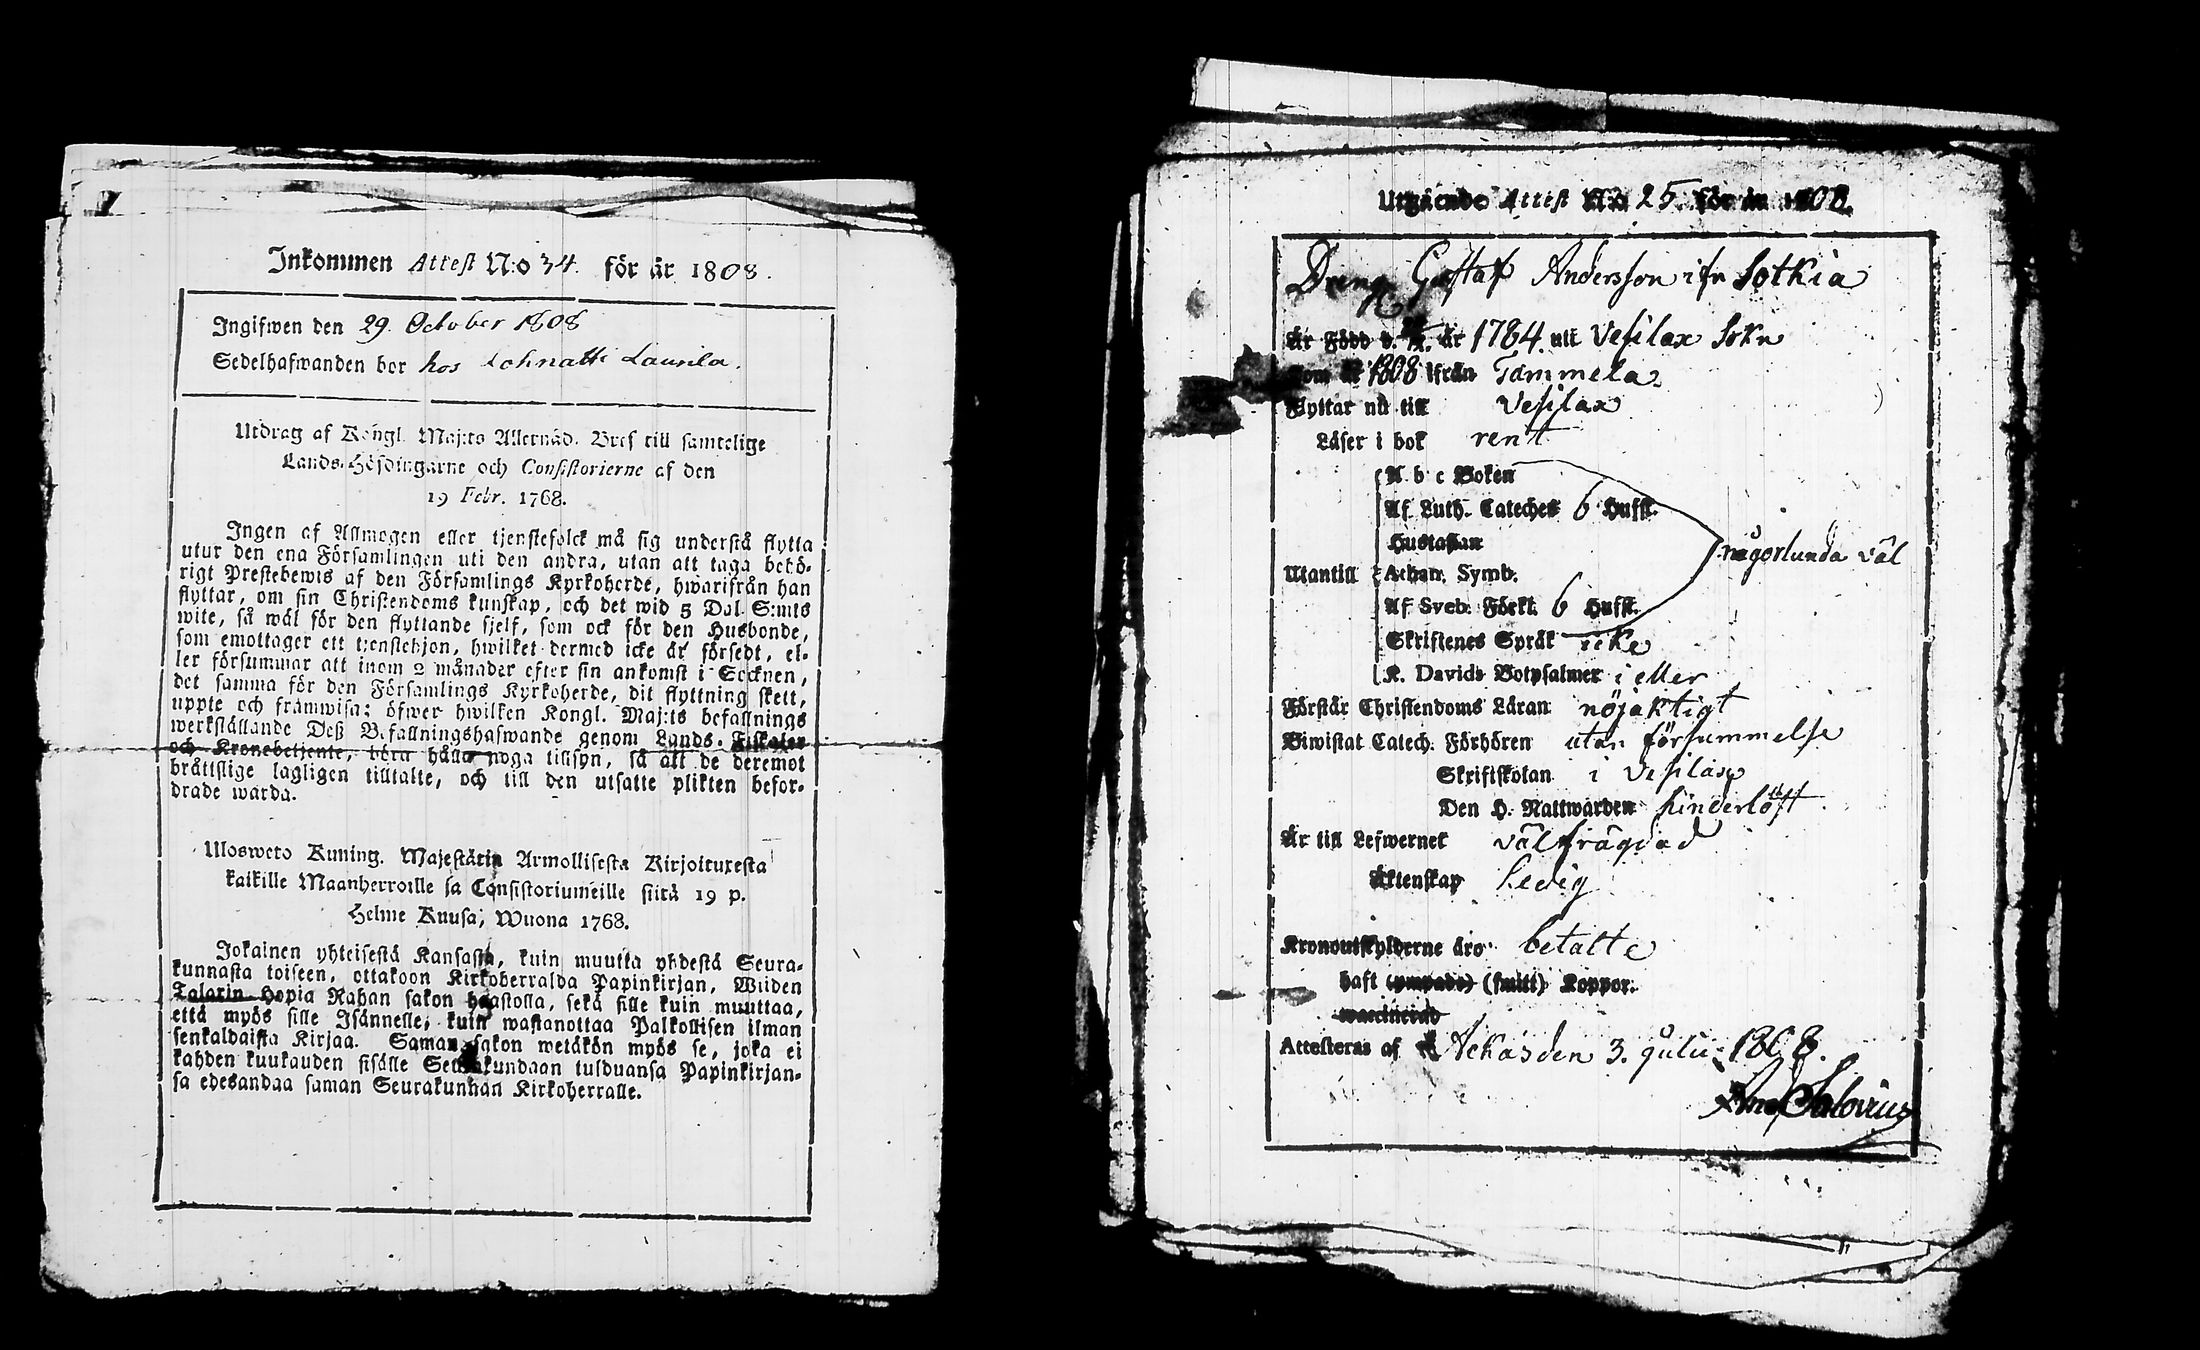 Inkommen Attest N:o 34. för år 1808.
Ingifwen den 29. October 1808
Sedelhafwanden bor hos Lohnatti Laurila.
Utdrag af Kongl. Maj:ts Allernåd. Bref till samtelige
Lands-Höfdingarne och Consistorierne af den
19 Febr. 1768.
Ingen af Allmogen eller tjenstefolck må sig understå flytta
utur den ena Församlingen uti den andra, utan att taga behö-
rigt Prestebewis af den Församlings Kyrkoherde, hwarifrån han
flyttar, om sin Christendoms kunskap, och det wid 5 Dal. S:mts
wite, så wäl för den flyttande sjelf, som ock för den Husbonde,
som emottager ett tjenstehjon, hwilket dermed icke är försedt, el-
ler försummar att inom 2 månader efter sin ankomst i Socknen,
det samma för den Församlings Kyrkoherde, dit flyttning skett,
uppte och framwisa; öfwer hwilken Kongl. Maj:ts befallnings
werkställande Deß Befallningshafwande genom Lands-Fiskaler
och Kronobetjente, böra hålla noga tillsyn, så att de deremot
bråttslige lagligen tilltalte, och till den utsatte plikten befor-
drade warda.
Ulosweto Kuning. Majestätin Armollisesta Kirjoituxesta
kaikille Maanherroille ja Consistoriumeille siitä 19 p.
Helme Kuusa, Wuona 1768.
Jokainen yhteisestä Kansasta, kuin muutta yhdestä Seura-
kunnasta toiseen, ottakoon Kirkoherralda Papinkirjan, Wiiden
Talarin Hopia Rahan sakon haastolla, sekä sille kuin muuttaa,
että myös sille Isännelle, kuin wastanottaa Palkollisen ilman
senkaldaista Kirjaa. Saman sakon wetäkön myös se, joka ei
kahden kuukauden sisälle Seurakundaan tulduansa Papinkirjan-
sa edesandaa saman Seurakunnan Kirkoherralle.
Utgående Attest N:o 25 för år 1808.
Dreng Gustaf Andersson ifr Sotkia
Är Född d. år 1784. uti Vesilax Sokn
Kom år 1808 ifrån Tammela
Flyttar nu till Vesilax
Läser i bok rent
A b c Boken
Af Luth. Cateches 6 Hufst.
Hustaflan
Utantill Athan. Symb. någorlunda väl
Af Sveb. Förkl. 6 Hufst.
Skriftenes Språk icke
K. Davids Botpsalmer i eller
Förstår Christendoms Läran nöjaktigt
Biwistat Catech. Förhören utan försummelse
Skriftskolan i Vesilax
Den H. Nattwarden hinderlöst
Är till Lefwernet välfrägdad
Äktenskap Ledig
Kronoutskylderne äro betalte
haft (ympade) (smitt) Koppor.
vaccinerad
Attesteras af Ackas den 3. Julii 1808.